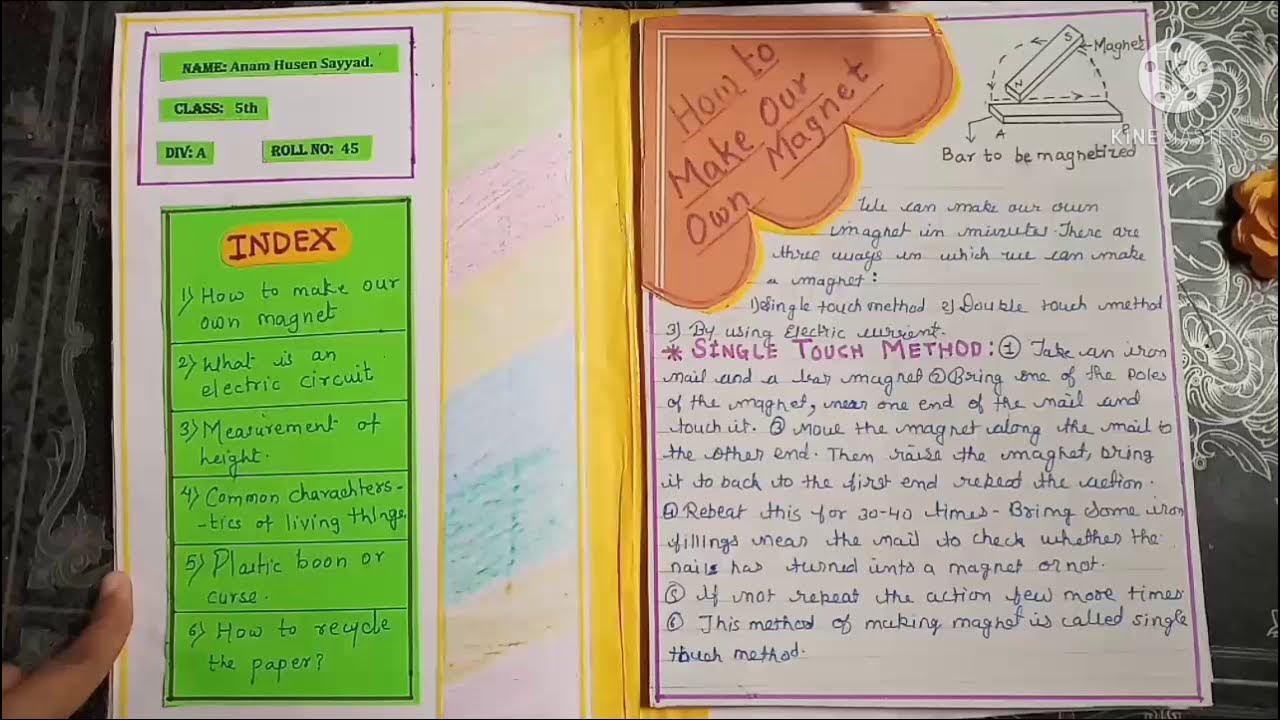 NAME: Anam Husen Sayyad.
CLASS: 5th
DIV: A
ROLL NO: 45
INDEX
1) How to make our
own magnet
2) What is an
electric circuit
3) Measurement of
height.
4) Common charachters-
-tics of living things.
5) Plastic boon or
curse.
6) How to recycle
the paper?
How to
Make Our
Own Magnet
S
Magnet
N
A
B
KINEMASTER
Bar to be magnetized
We can make our own
magnet in minutes. There are
three ways in which we can make
a magnet:
1) Single touch method 2) Double touch method
3) By using Electric current.
* SINGLE TOUCH METHOD: ① Take an iron
nail and a bar magnet ② Bring one of the Poles
of the magnet, near one end of the nail and
touch it. ③ Move the magnet along the nail to
the other end. Then raise the magnet, bring
it to back to the first end repeat the action.
④ Repeat this for 30-40 times - Bring some iron
fillings near the nail to check whether the
nails has turned into a magnet or not.
⑤ If not repeat the action few more times
⑥ This method of making magnet is called single
touch method.